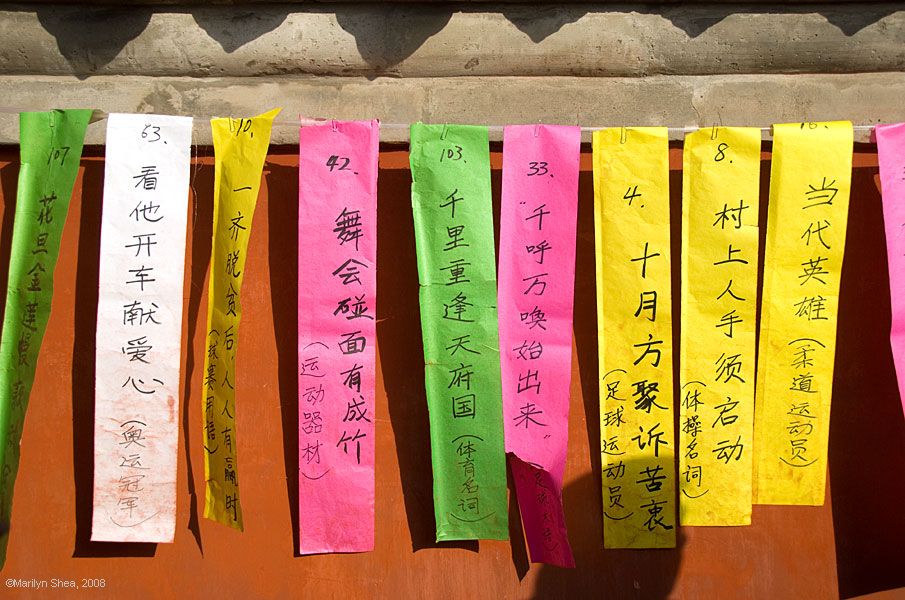 107
花旦金莲慢
63
看他开车献爱心
(奥运冠军)
10.
一齐脱贫后,人人有赢时
(球赛用语)
42.
舞会碰面有成竹
(运动器材)
103.
千里重逢天府国
(体育名词)
33.
"千呼万唤始出来"
4.
十月方聚诉苦衷
(足球运动员)
8.
村上人手须启动
(体操名词)
16.
当代英雄
(柔道运动员)
©Marilyn Shea, 2008